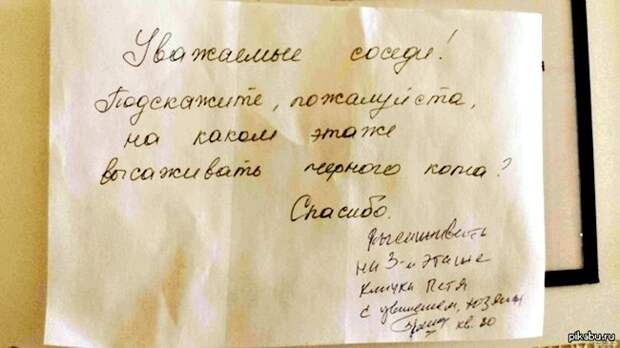 Уважаемые соседи!
Подскажите, пожалуйста,
на каком этаже
высаживать черного кота?
Спасибо.
Высаживать
на 3-м этаже
кличка Петя
с уважением, хозяин
кв. 20
pikabu.ru